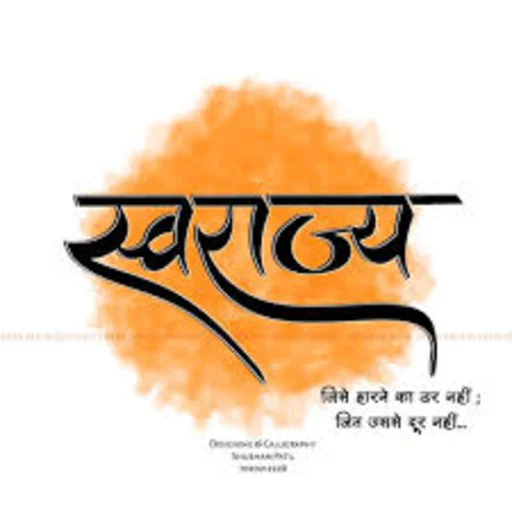 स्वराज्य
जिसे हारने का डर नहीं ;
जित उससे दूर नहीं...
Designing & Calligraphy
Shubham Patil